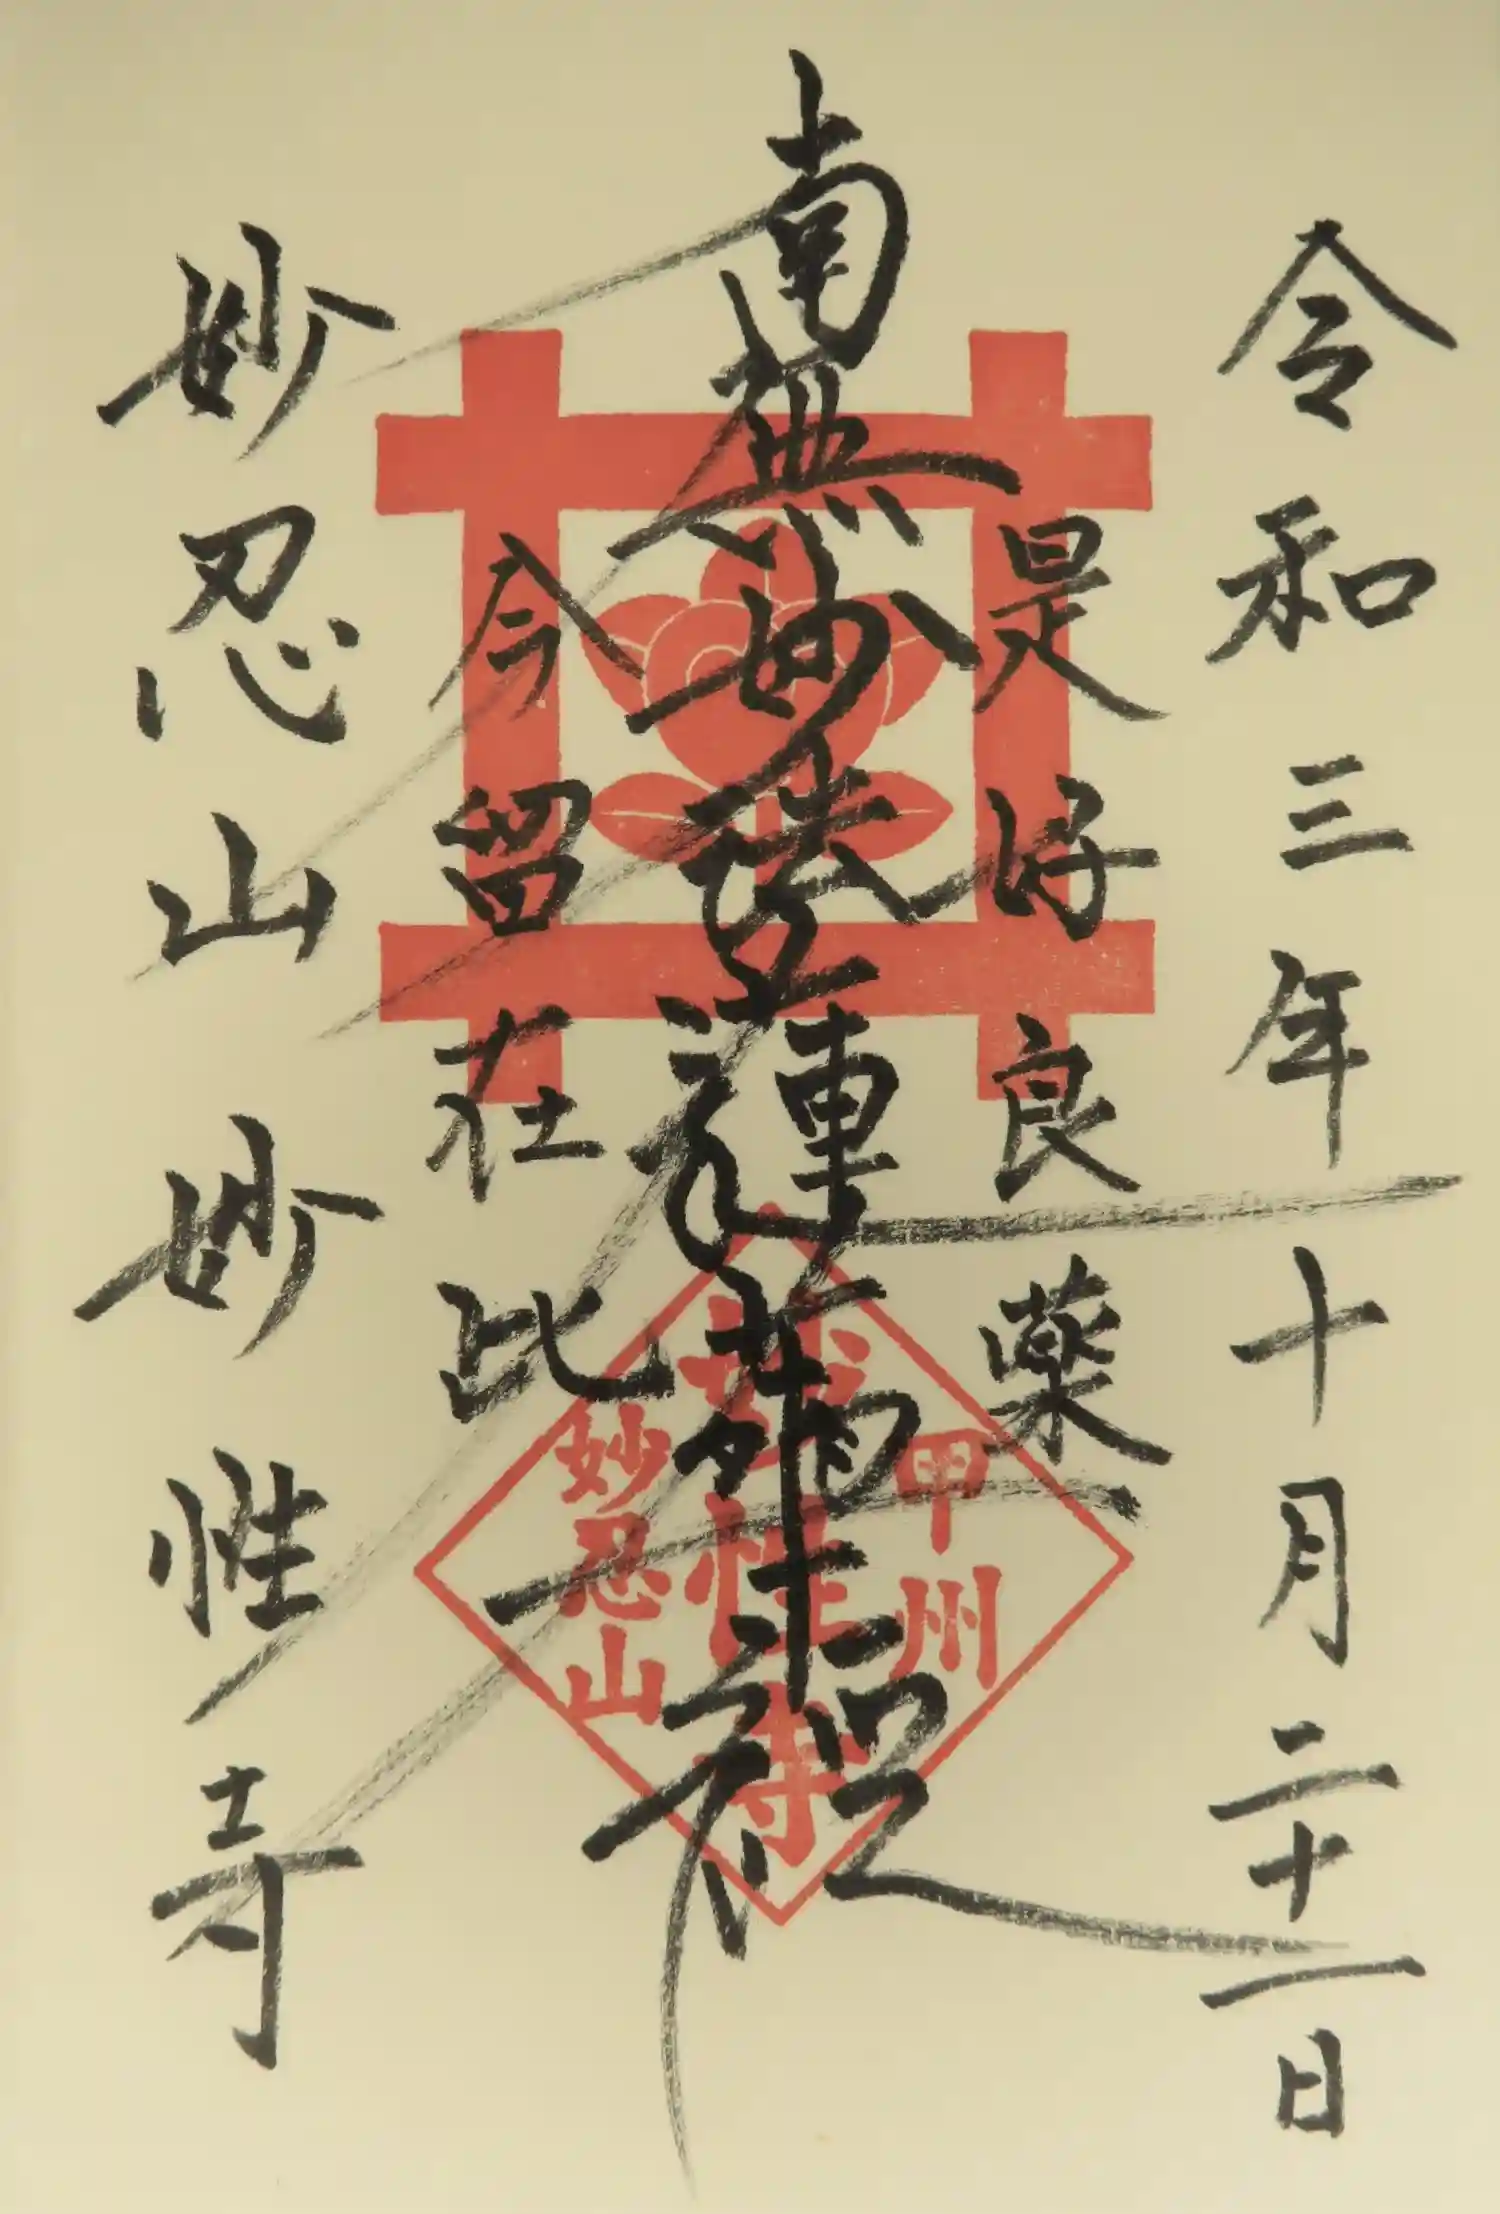 令和三年十月二十一日
是好良薬
南無妙法蓮華経
今留在此
妙忍山妙性寺
甲州
妙性寺
妙忍山